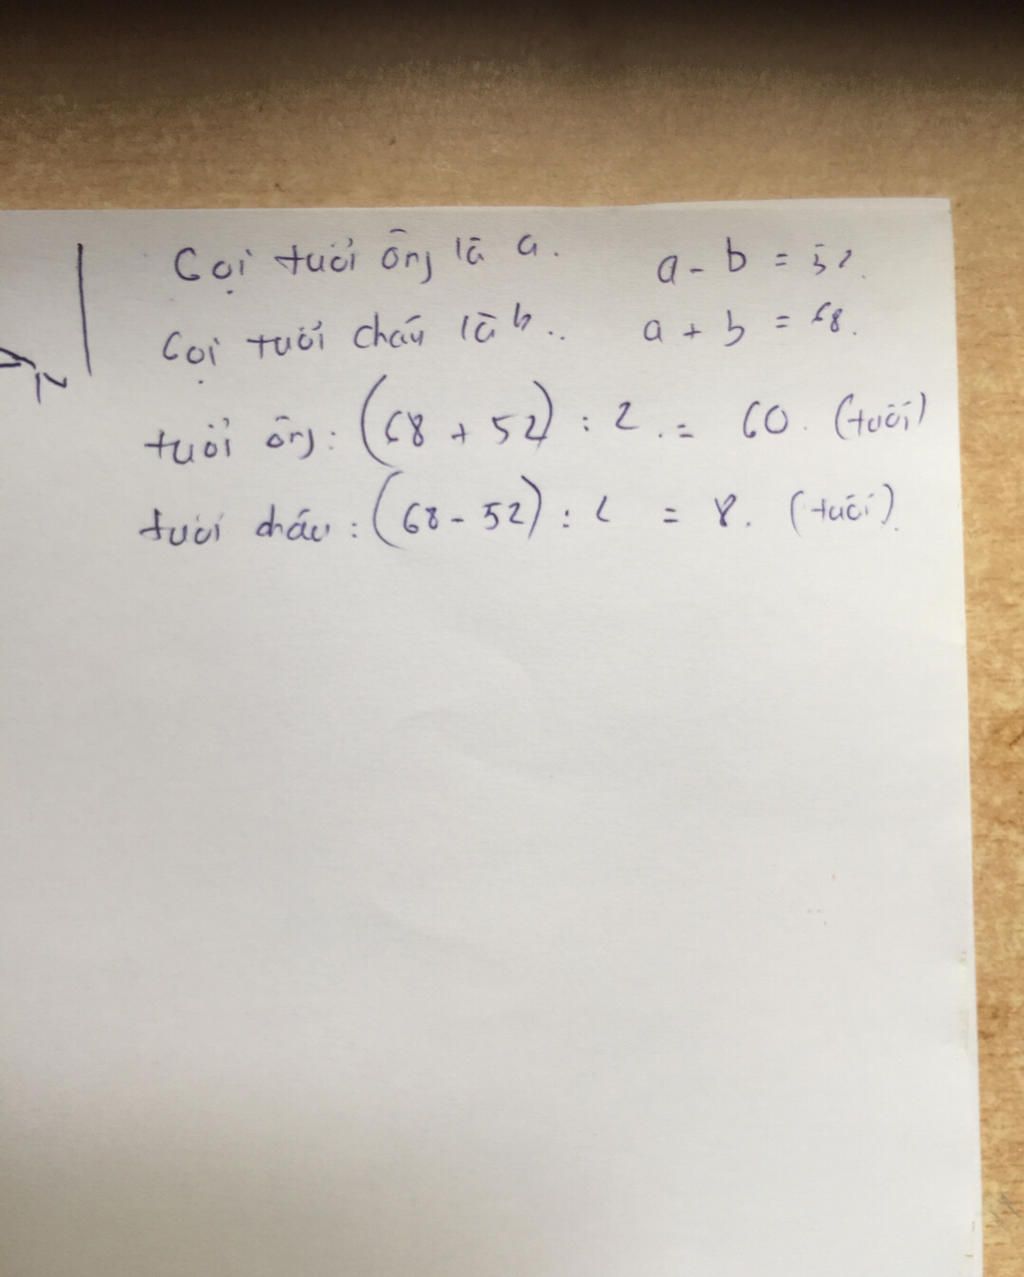 Gọi tuổi ông là a. a - b = 52.
Gọi tuổi cháu là b.. a + b = 68.
tuổi ông: (68 + 52) : 2 . = 60. (tuổi)
tuổi cháu: (68 - 52) : 2 = 8. (tuổi).